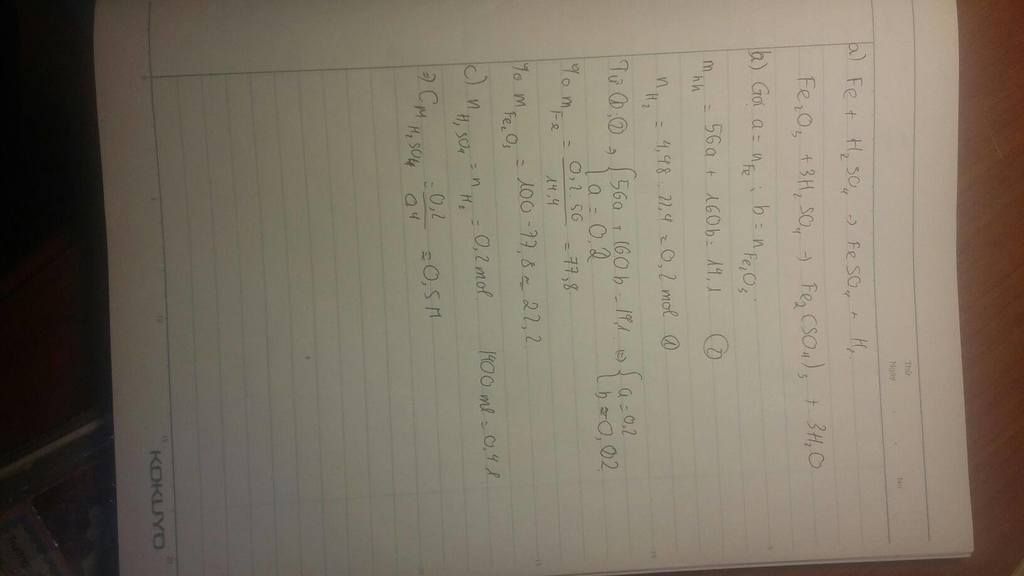 Thứ
Ngày
No.
a) Fe + H2SO4 → FeSO4 + H2
Fe2O3 + 3H2SO4 → Fe2(SO4)3 + 3H2O
b) Gọi a = nFe ; b = nFe2O3
mhh = 56a + 160b = 14,4 ②
nH2 = 4,48 : 22,4 = 0,2 mol ①
Từ ①, ② → { 56a + 160b = 14,4 ⇔ { a = 0,2
a = 0,2 b = 0,02
% mFe = 0,2.56 / 14,4 = 77,8
% mFe2O3 = 100 - 77,8 = 22,2
c) nH2SO4 = nH2 = 0,2 mol 400 ml = 0,4 l
⇒ CM H2SO4 = 0,2 / 0,4 = 0,5 M
KOKUYO